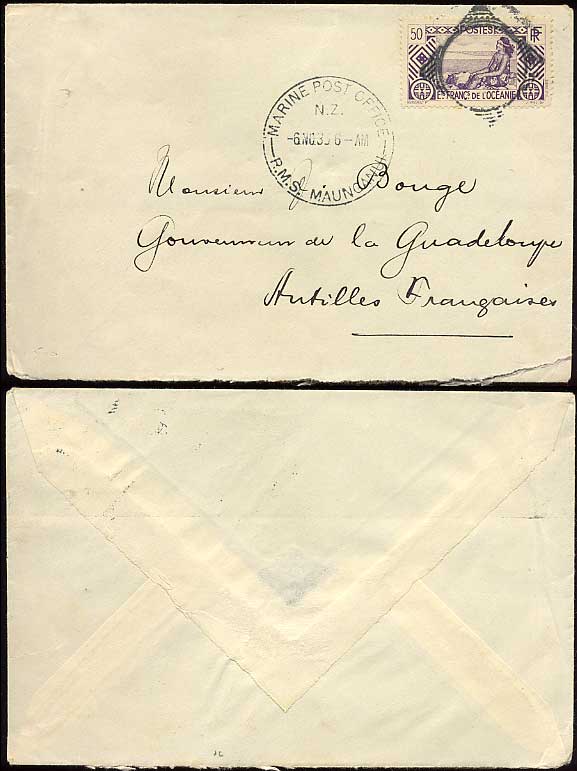 50 POSTES RF
Ets FRANÇs DE L'OCÉANIE
MARINE POST OFFICE
N.Z.
-6NO.35 6-AM
R.M.S. MAUNGANUI
Monsieur J. Bouge
Gouverneur de la Guadeloupe
Antilles Françaises